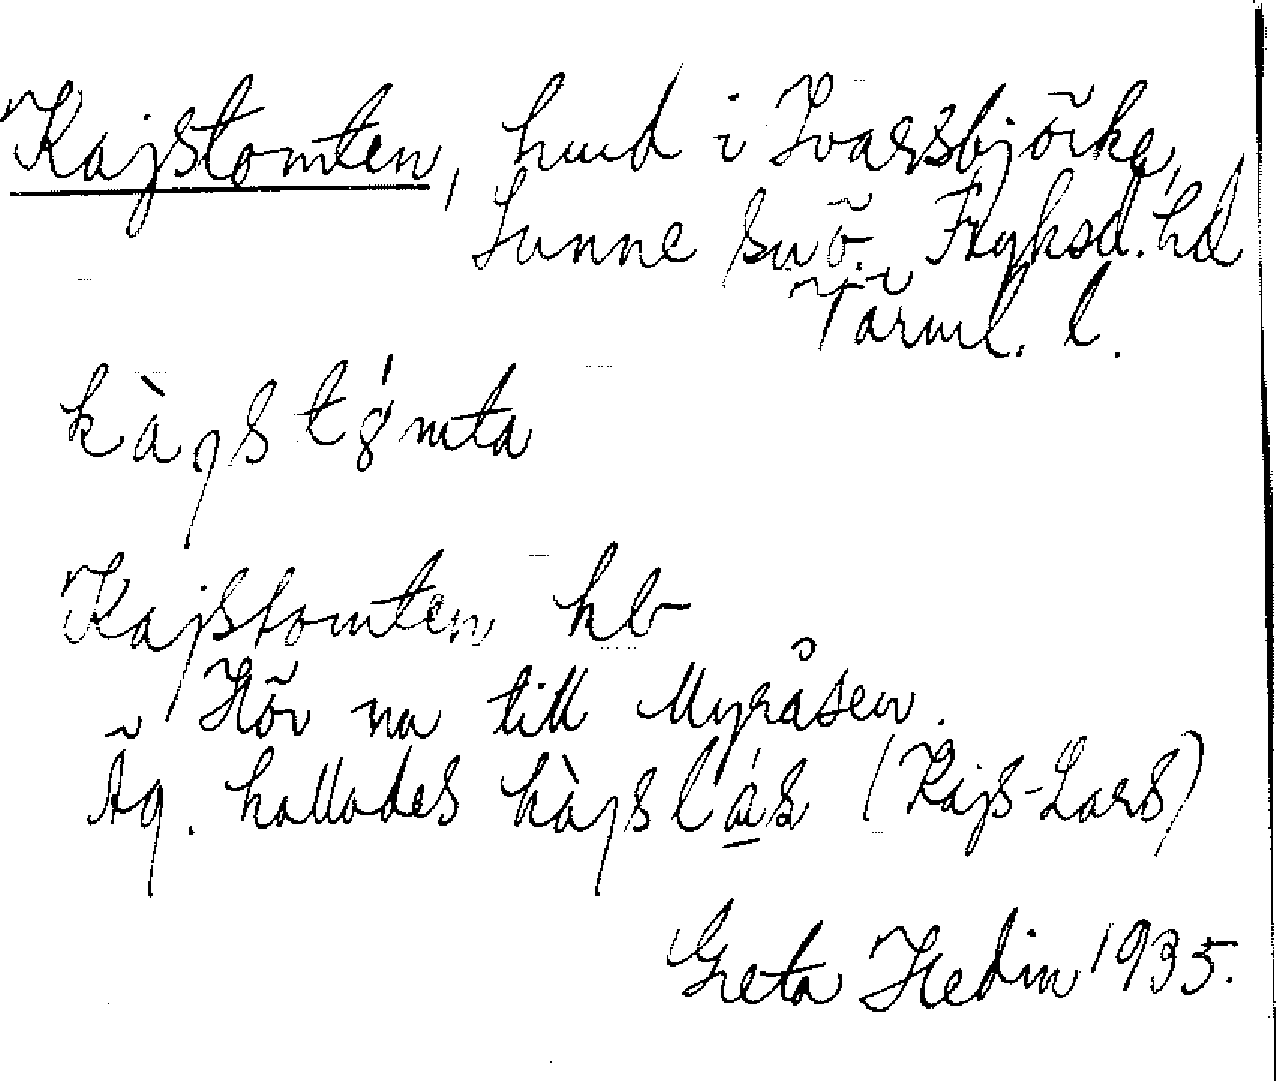 Kajstomten, hmd i Ivarsbjörke,
Sunne sn ö. Fryksd. hd
Värml. l.
kàjstǿmta
Kajstomten hb
Hör nu till Myråsen.
Äg. kallades kàjslás (Kajs-Lars)
Greta Hedin 1935.